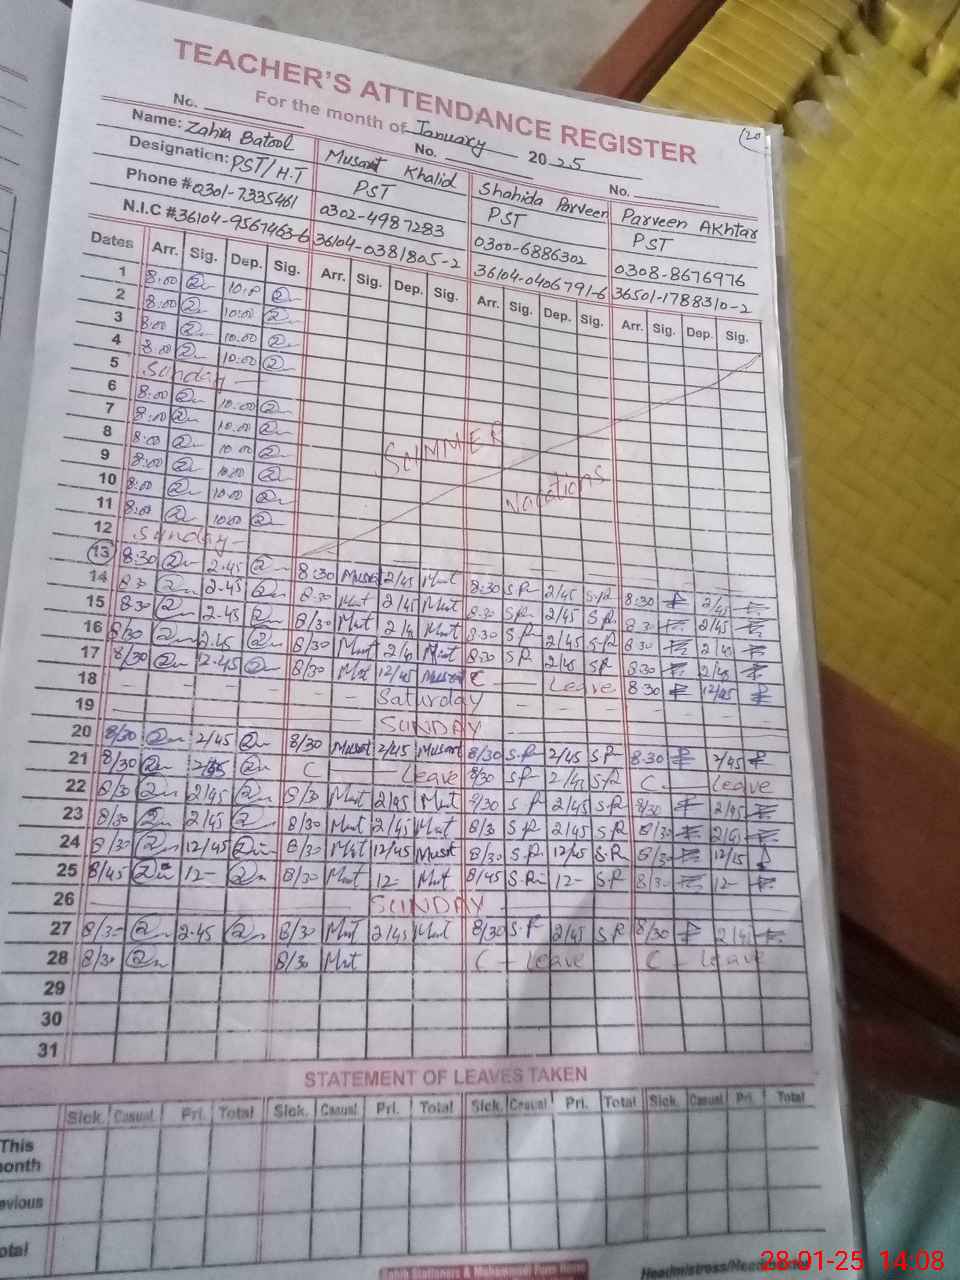 TEACHER'S ATTENDANCE REGISTER
20
For the month of January 2025
No. No. No.
Name: Zahra Batool Musarat Khalid Shahida Parveen Parveen Akhtar
Designation: PST/H.T PST PST PST
Phone # 0301-7335461 0302-4987283 0300-6886302 0308-8676976
N.I.C # 36104-9567463-6 36104-0381805-2 36104-0406791-6 36501-1788310-2
Dates Arr. Sig. Dep. Sig. Arr. Sig. Dep. Sig. Arr. Sig. Dep. Sig. Arr. Sig. Dep. Sig.
1 8:00
2 8:00 10:00
3 8:00 10:00
4 8:00 10:00
5 Sunday
6 8:00 10:00
7 8:00 10:00
8 8:00 10:00
9 8:00 10:00
10 8:00 10:00
11 8:00 10:00
12 Sunday
SUMMER
Vacations
13 8:30 2.45 8:30 2/45 8:30 S.P. 2/45 S.R 8:30 2/45
14 8:30 2.45 8:30 2/45 8:30 S.R 2/45 S.R 8:30 2/45
15 8:30 2.45 8/30 8:30 S.R 2/45 S.R 8:30 2/45
16 8/30 2.45 8/30 8:30 S.R 2/45 S.R 8:30 2/45
17 8/30 12.45 8/30 12/45 C Leave 8:30 12/45
18 Saturday
19 SUNDAY
20 8/30 2/45 8/30 2/45 8/30 S.R 2/45 S.R 8:30 2/45
21 8/30 2/45 C Leave 8/30 S.R 2/45 S.R C Leave
22 8/30 2/45 8/30 2/45 8/30 S.R 2/45 S.R 8/30 2/45
23 8/30 2/45 8/30 2/45 8/30 S.R 2/45 S.R 8/30 2/45
24 8/30 12/45 8/30 12/45 8/30 S.R 12/45 S.R 8/30 12/15
25 8/45 12- 8/30 12- 8/45 S.R 12- S.R 8/30 12-
26 SUNDAY
27 8/30 2.45 8/30 2/45 8/30 S.R 2/45 S.R 8/30 2/45
28 8/30 8/30 C - Leave C - Leave
29
30
31
STATEMENT OF LEAVES TAKEN
Sick. Casual Pri. Total Sick. Casual Pri. Total Sick. Casual Pri. Total Sick. Casual Pri. Total
This
onth
evious
otal
28-01-25 14:08